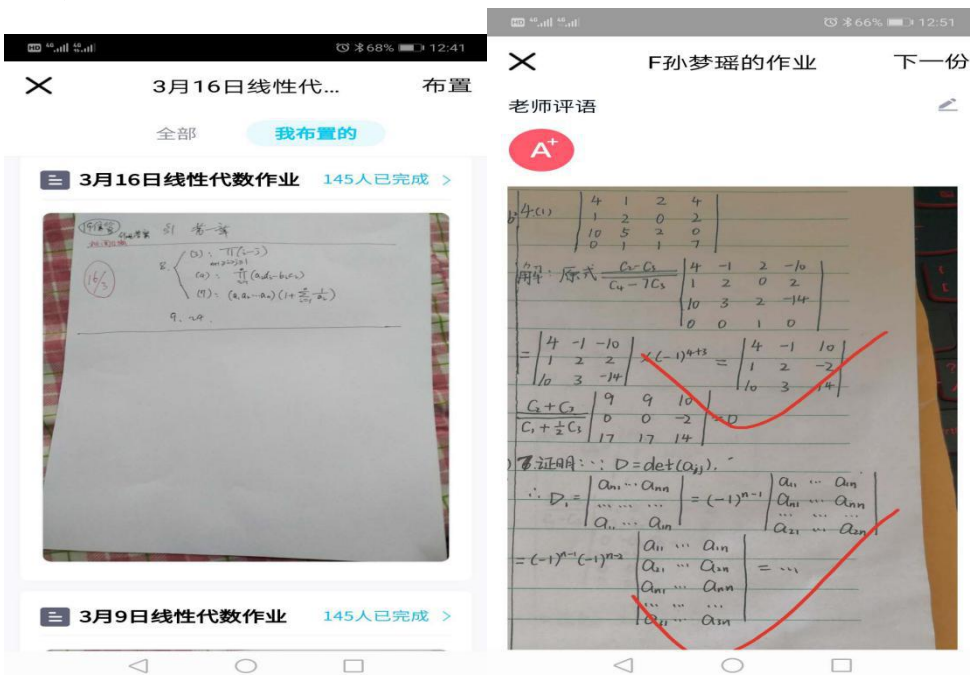 HD 4G 4G 68% 12:41
3月16日线性代... 布置
全部 我布置的
3月16日线性代数作业 145人已完成 >
8. (2): ∏(i-j)
n+1≥i>j≥1
(4): ∏(aᵢdᵢ-bᵢcᵢ)
(7): (a₁a₂…aₙ)(1+∑1/aᵢ)
9. 24
3月9日线性代数作业 145人已完成 >
HD 4G 4G 66% 12:51
F孙梦瑶的作业 下一份
老师评语
A+
4.(1)
4 1 2 4
1 2 0 2
10 5 2 0
0 1 1 7
解: 原式 C₂-C₃
C₄-7C₃
4 -1 2 -10
1 2 0 2
10 3 2 -14
0 0 1 0
=
4 -1 -10
1 2 2
10 3 -14
×(-1)⁴⁺³ =
4 -1 10
1 2 -2
10 3 14
C₂+C₃
C₁+½C₃
9 9 10
0 0 -2
17 17 14
=0
证明: ∵ D=det(aᵢⱼ).
∴ D₁=
aₙ₁ … aₙₙ
… … …
a₁₁ … a₁ₙ
=(-1)ⁿ⁻¹
a₁₁ … a₁ₙ
aₙ₁ … aₙₙ
… … …
a₂₁ … a₂ₙ
=(-1)ⁿ⁻¹(-1)ⁿ⁻²
a₁₁ … a₁ₙ
a₂₁ … a₂ₙ
aₙ₁ … aₙₙ
… … …
a₃₁ … a₃ₙ
= …